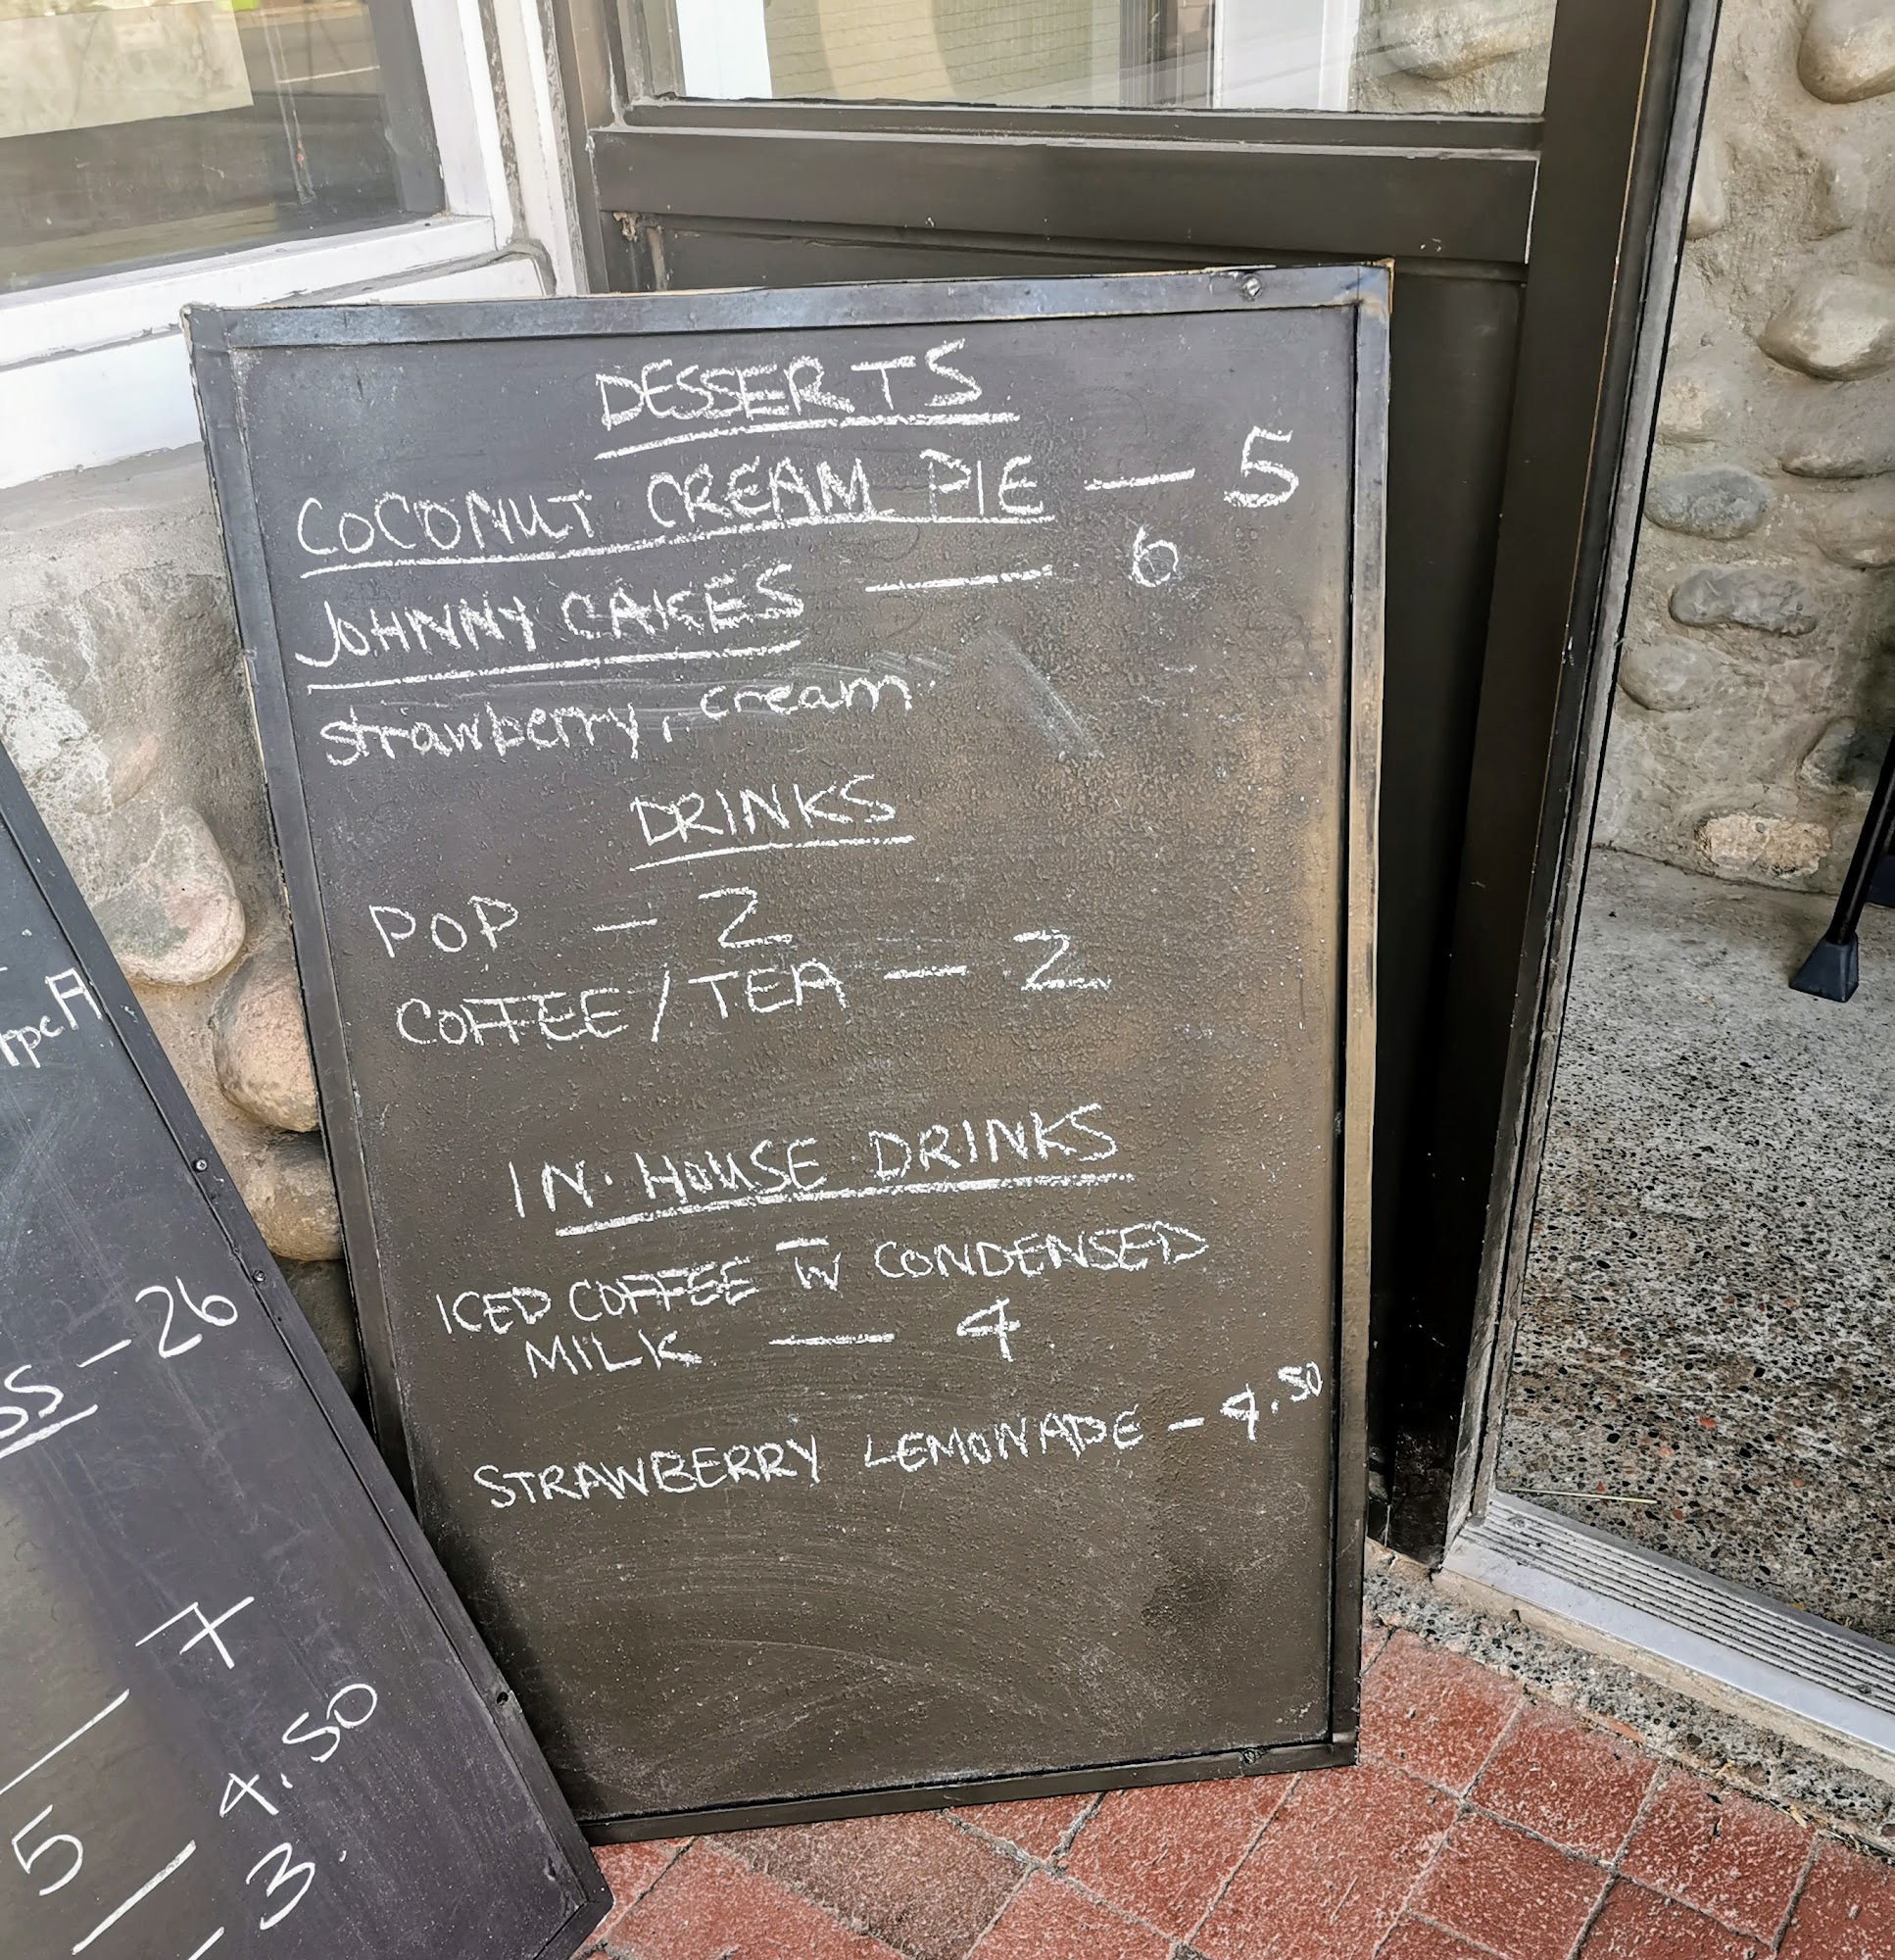 DESSERTS
COCONUT CREAM PIE — 5
JOHNNY CAKES — 6
strawberry, cream
DRINKS
POP — 2
COFFEE/TEA — 2
IN-HOUSE DRINKS
ICED COFFEE W CONDENSED
MILK — 4
STRAWBERRY LEMONADE - 4.50
- 26
7
4.50
5
3.